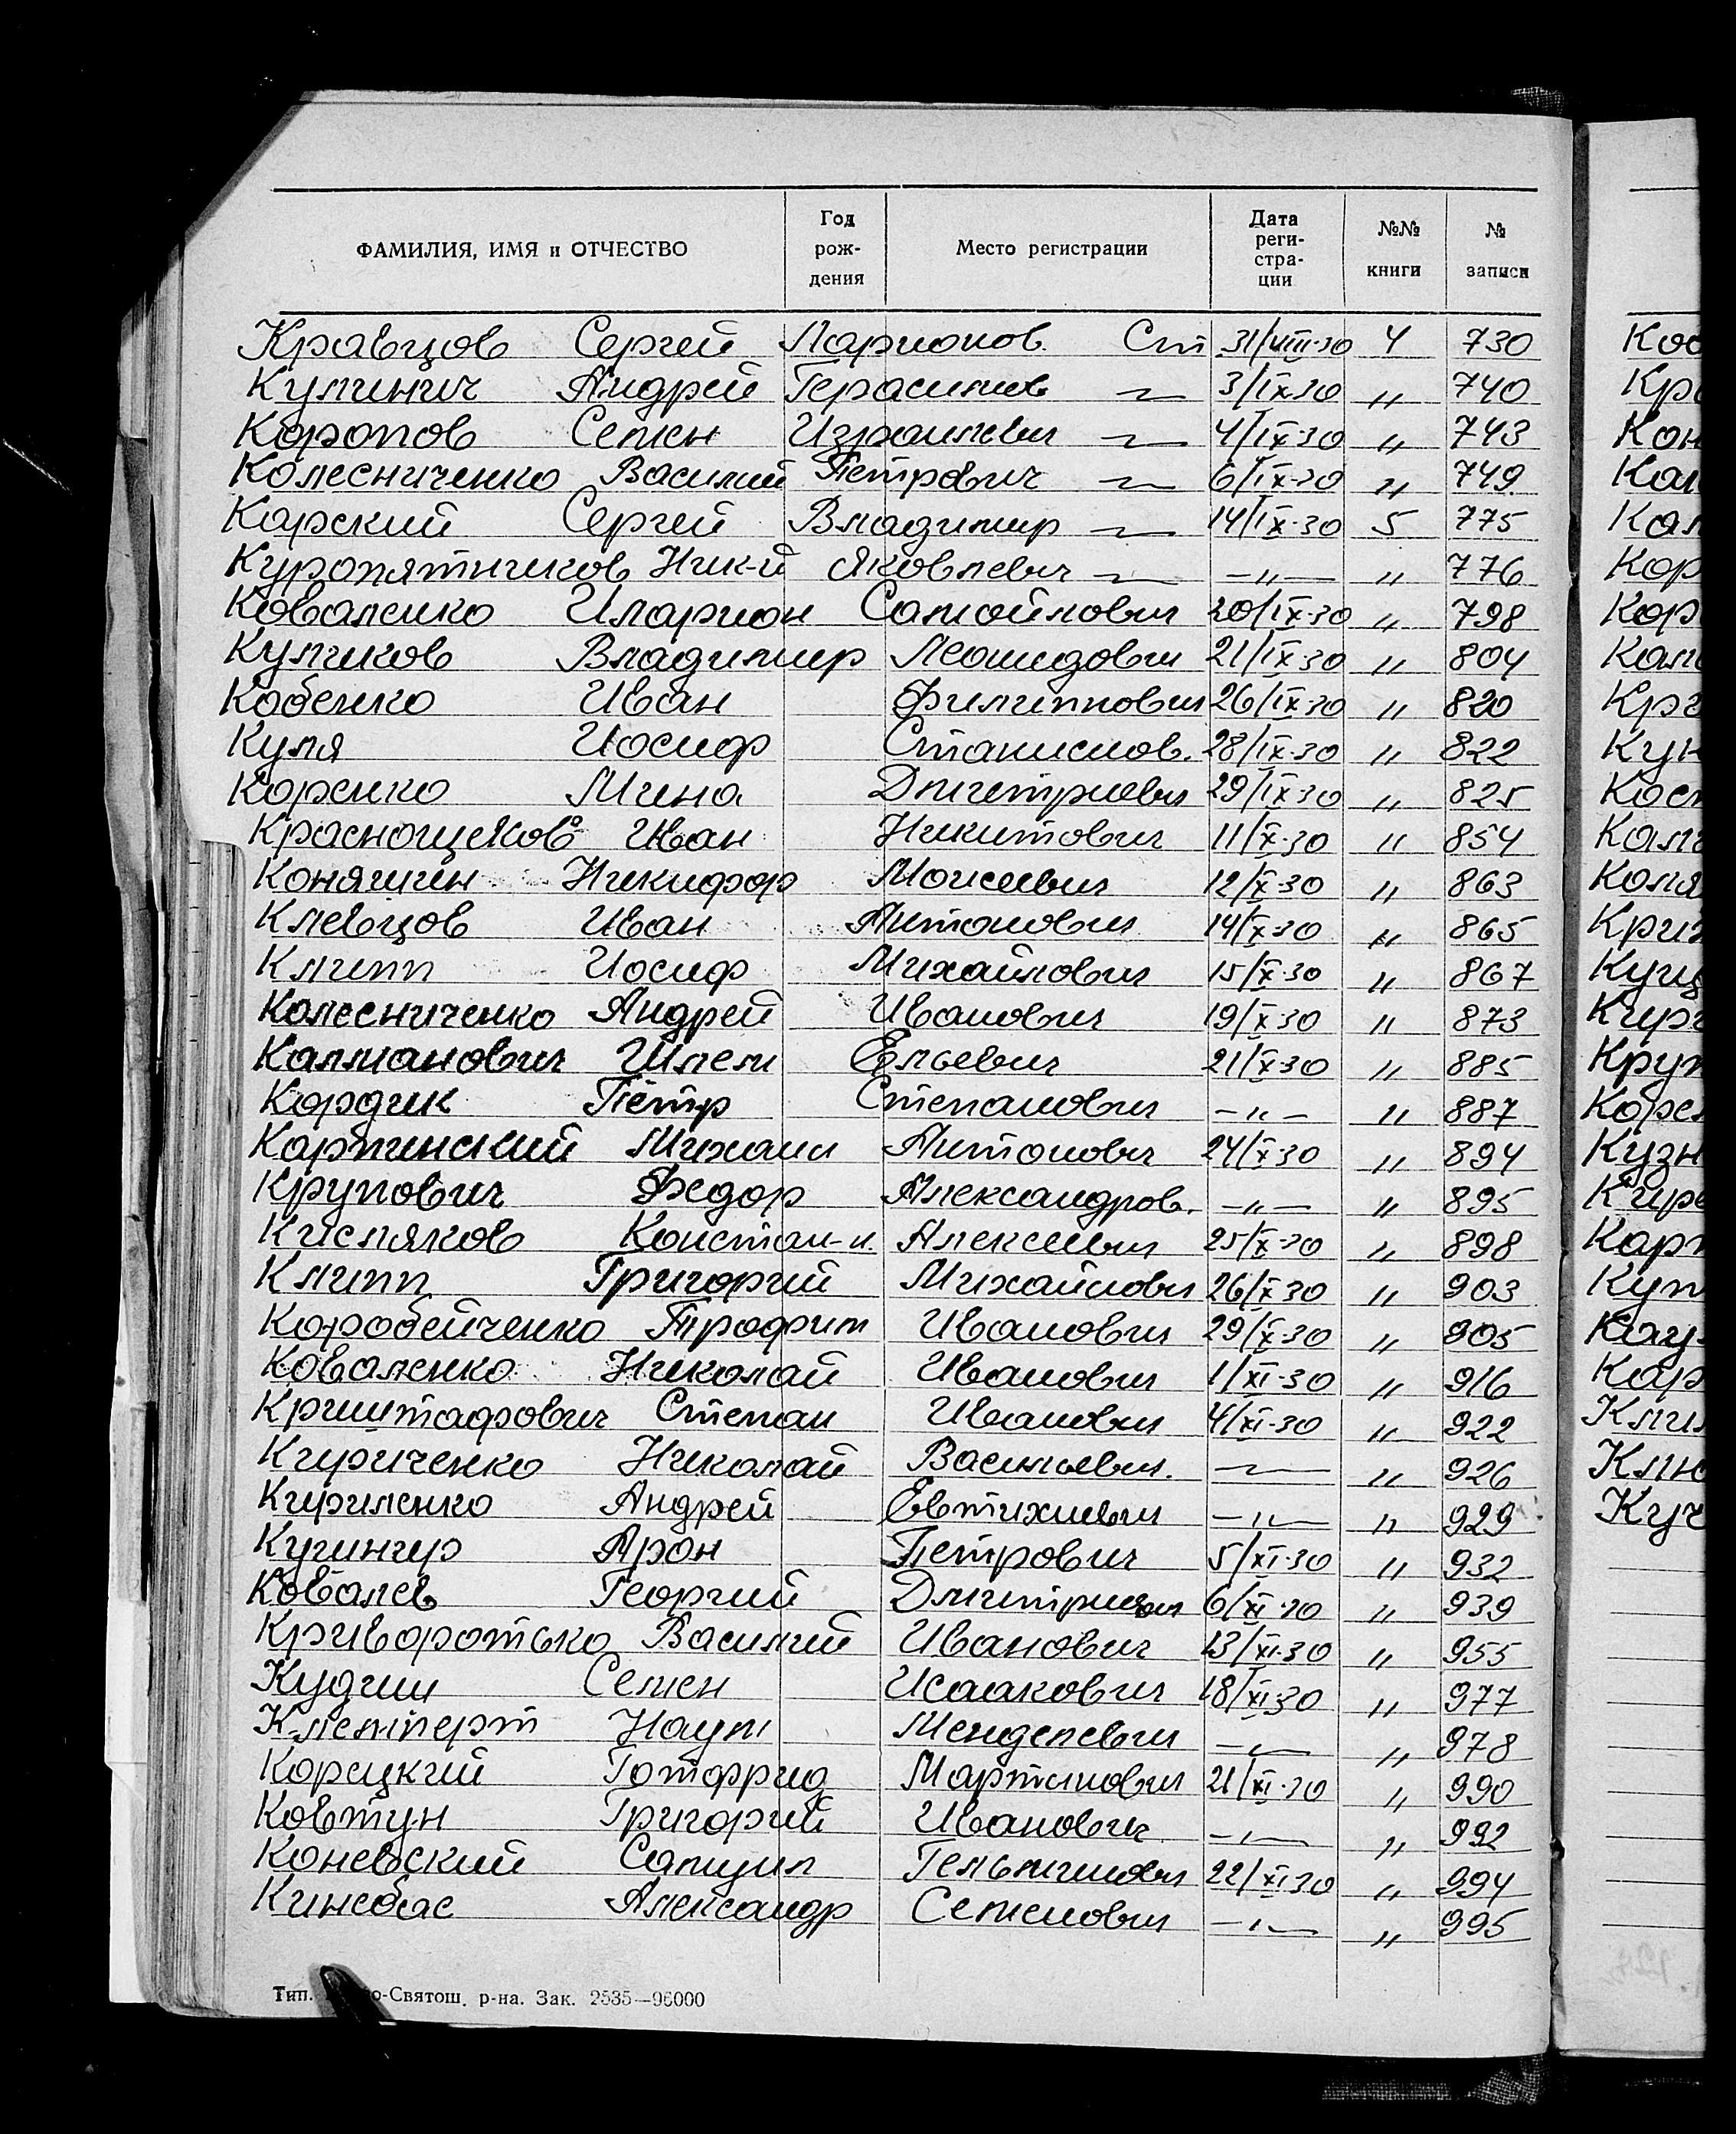 ФАМИЛИЯ, ИМЯ и ОТЧЕСТВО Год рож- дения Место регистрации Дата реги- стра- ции №№ книги № записи
Кравцов Сергей Ларионов. Ст 31/VIII-30 4 730
Кулинич Андрей Герасимов — 3/IX-30 " 740
Коропов Семен Израилевич — 4/IX-30 " 743
Колесниченко Василий Петрович — 6/IX-30 " 749
Карский Сергей Владимир — 14/IX-30 5 775
Куропятников Ник-й Яковлевич — —"— " 776
Коваленко Иларион Самойлович 20/IX-30 " 798
Куликов Владимир Леонидович 21/IX-30 " 804
Кобенко Иван Филиппович 26/IX-30 " 820
Куля Иосиф Станислов. 28/IX-30 " 822
Коренко Мина Дмитриевич 29/IX-30 " 825
Краснощеков Иван Никитович 11/X-30 " 854
Конягин Никифор Моисеевич 12/X-30 " 863
Клевцов Иван Антонович 14/X-30 " 865
Клипп Иосиф Михайлович 15/X-30 " 867
Колесниченко Андрей Иванович 19/X-30 " 873
Калманович Шлем Ельевич 21/X-30 " 885
Кордик Петр Степанович —"— " 887
Карпинский Михаил Антонович 24/X-30 " 894
Крупович Федор Александров. —"— " 895
Кисляков Констан-н. Алексеевич 25/X-30 " 898
Клипп Григорий Михайлович 26/X-30 " 903
Коробейченко Трофим Иванович 29/X-30 " 905
Коваленко Николай Иванович 1/XI-30 " 916
Криштафович Степан Иванович 4/XI-30 " 922
Кириченко Николай Васильевич. — " 926
Кириленко Андрей Евтихиевич —"— " 929
Кушнир Арон Петрович 5/XI-30 " 932
Ковалев Георгий Дмитриевич 6/XI-30 " 939
Криворотько Василий Иванович 13/XI-30 " 955
Кудиш Семен Исаакович 18/XI-30 " 977
Клемперт Наум Менделевич —"— " 978
Корецкий Готфрид Мартынович 21/XI-30 " 990
Ковтун Григорий Иванович —"— " 992
Коневский Самуил 22/XI-30 " 994
Александр Семенович —"— " 995
Тип. р-на. Зак. 2535—96000